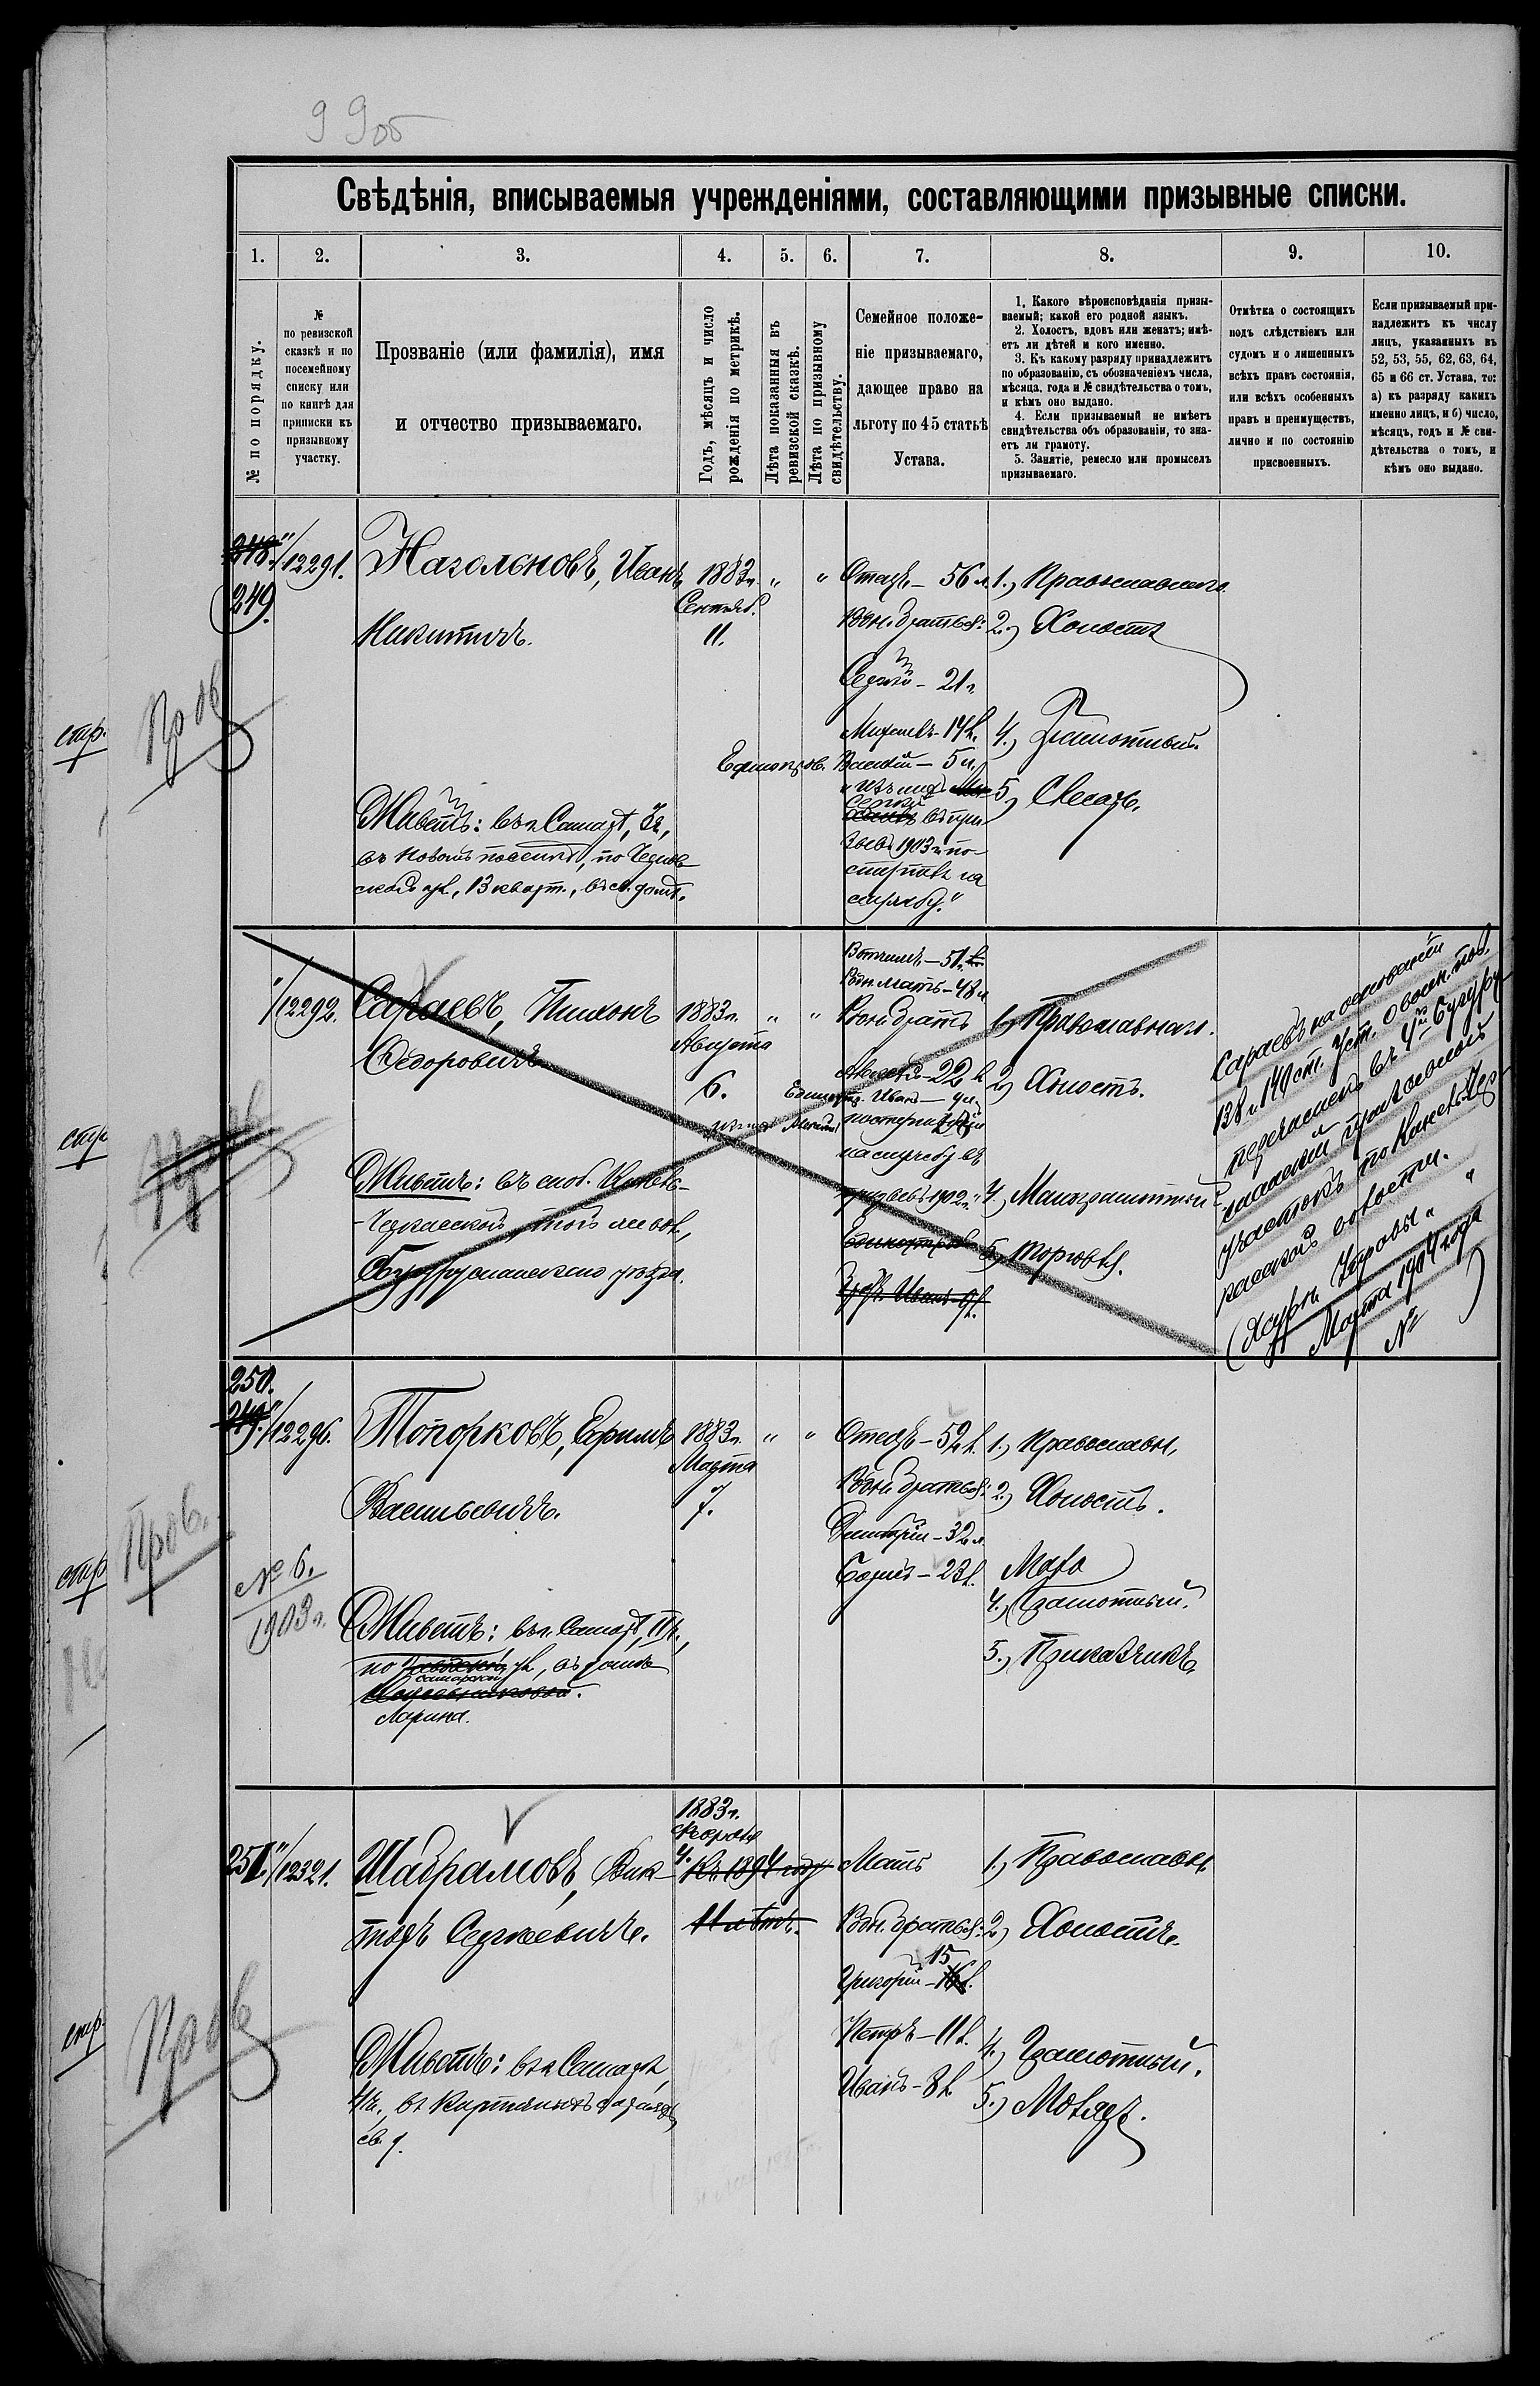 99об
Свѣдѣнія, вписываемыя учрежденіями, составляющими призывные списки.
1. 2. 3. 4. 5. 6. 7. 8. 9. 10.
№ по порядку.
№
по ревизской
сказкѣ и по
посемейному
списку или
по книгѣ для
приписки къ
призывному
участку.
Прозваніе (или фамилія), имя
и отчество призываемаго.
Годъ, мѣсяцъ и число
рожденія по метрикѣ.
Лѣта показанныя въ
ревизской сказкѣ.
Лѣта по призывному
свидѣтельству.
Семейное положе-
ніе призываемаго,
дающее право на
льготу по 45 статьѣ
Устава.
1. Какого вѣроисповѣданія призы-
ваемый; какой его родной языкъ.
2. Холостъ, вдовъ или женатъ; имѣ-
етъ ли дѣтей и кого именно.
3. Къ какому разряду принадлежитъ
по образованію, съ обозначеніемъ числа,
мѣсяца, года и № свидѣтельства о томъ,
и кѣмъ оно выдано.
4. Если призываемый не имѣетъ
свидѣтельства объ образованіи, то зна-
етъ ли грамоту.
5. Занятіе, ремесло или промыселъ
призываемаго.
Отмѣтка о состоящихъ
подъ слѣдствіемъ или
судомъ и о лишенныхъ
всѣхъ правъ состоянія,
или всѣхъ особенныхъ
правъ и преимуществъ,
лично и по состоянію
присвоенныхъ.
Если призываемый при-
надлежитъ къ числу
лицъ, указанныхъ въ
52, 53, 55, 62, 63, 64,
65 и 66 ст. Устава, то:
а) къ разряду какихъ
именно лицъ, и б) число,
мѣсяцъ, годъ и № сви-
дѣтельства о томъ, и
кѣмъ оно выдано.
248.
249.
"/12291.
Наголеновъ, Иванъ
Никитичъ.
1883г.
Сентяб.
11.
" "
Отецъ – 56 л.
Родн. братья:
Сергѣй – 21 г.
Михаилъ – 14 л.
Единоутров. Василій – 5 л.
"Изъ нихъ
Сергѣй въ при-
зывъ 1903 г. по-
ступилъ на
службу."
1.) Православнаго
2.) Холостъ
4.) Грамотный.
5.) Слесарь.
стр.
Пров
Живетъ: въ г. Самарѣ, 3ч.,
въ Новомъ поселкѣ, по
ул., 13 кварт., въ с. домѣ.
"/12292.
Сараевъ, Тихонъ
Федоровичъ
1883г.
Августа
6.
" "
Вотчимъ – 51 г.
Родн. мать – 48 л.
Родн. братъ
Алексѣй – 22 л.
Единоутр. Иванъ – 9 л.
поступилъ
на службу въ
призывъ 1902 г."
Единоутров.
братъ Иванъ – 9 л.
1.) Православнаго.
2.) Холостъ.
4.) Малограмотный
5.) Торговля.
Сараевъ на основаніи
138 и 140 ст. Уст. о воин. пов.
перечисленъ въ 4й Бугуру-
сланскій призывной
участокъ по Кинель-Чер-
касской волости.
(Журн. Управы "  "
Марта 1904 года
№ )
стр
Пров
Живетъ: въ слоб. Кинель-
-Черкасской, той же вол.,
Бугурусланскаго уѣзда.
250.
249.
"/12296.
Топорковъ, Ефимъ
Васильевичъ.
1883г.
Марта
7.
" "
Отецъ – 52 л.
Родн. братья:
Дмитрій – 32 л.
Борисъ – 23 л.
1.) Православн.
2.) Холостъ.
Мало
4.) Грамотный.
5.) Приказчикъ.
стр
Пров.
№ 6.
1903 г.
Живетъ: въ г. Самарѣ, IIч.,
по Заводской ул., въ домѣ
самарской
Ларина.
251.
"/12321.
Шабрамовъ, Вик-
торъ Сергѣевичъ.
1883г.
Февраля
4.
Къ 1894 году
11 лѣтъ.
Мать
Родн. братья:
15
Григорій – 16 л.
Петръ – 11 л.
Иванъ – 8 л.
1.) Православн.
2.) Холостъ.
4.) Грамотный.
5.) Маляръ.
стр.
Пров
Живетъ: въ г. Самарѣ,
4ч., въ
св. д.